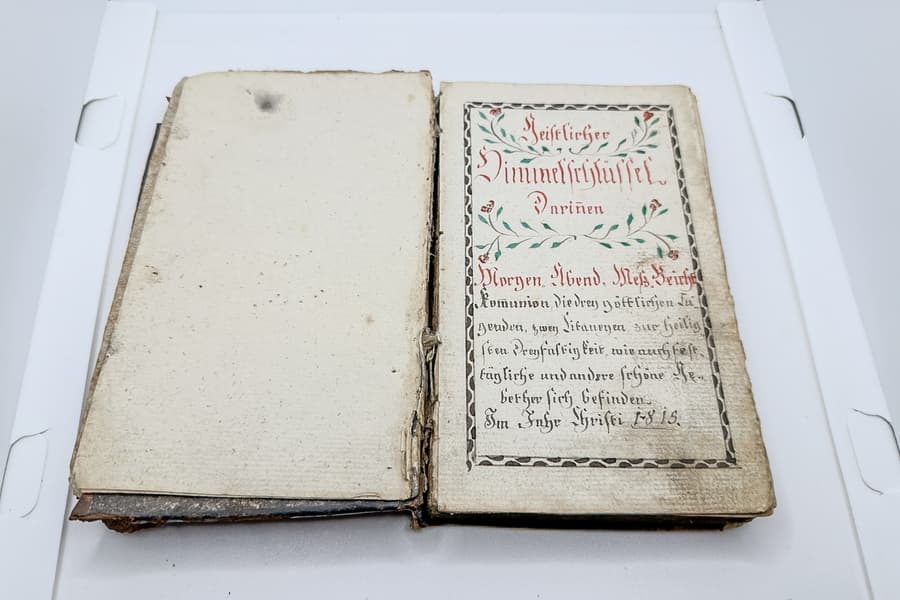 Geistlicher
Himmelschlüssel.
Darin̄en
Morgen, Abend, Meß, Beicht
Kom̄union die drey göttlichen Tu-
genden, zwey Litaneyen zur heilig
sten Dreyfaltigkeit, wie auch fest,
tägliche und andere schöne Ge-
bether sich befinden.
Im Jahr Christi 1815.